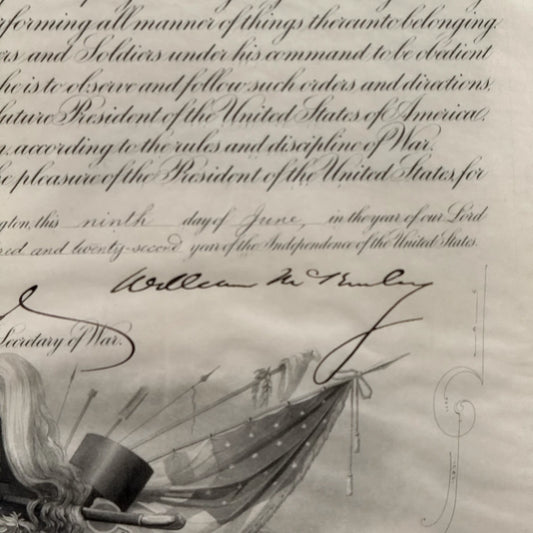 rforming all manner of things thereunto belonging.
ers, and Soldiers under his command to be obedient
he is to observe and follow such orders and directions,
future President of the United States of America,
g, according to the rules and discipline of War.
he pleasure of the President of the United States, for
gton, this ninth day of June, in the year of our Lord
dred and twenty-second year of the Independence of the United States.
William McKinley
Secretary of War.